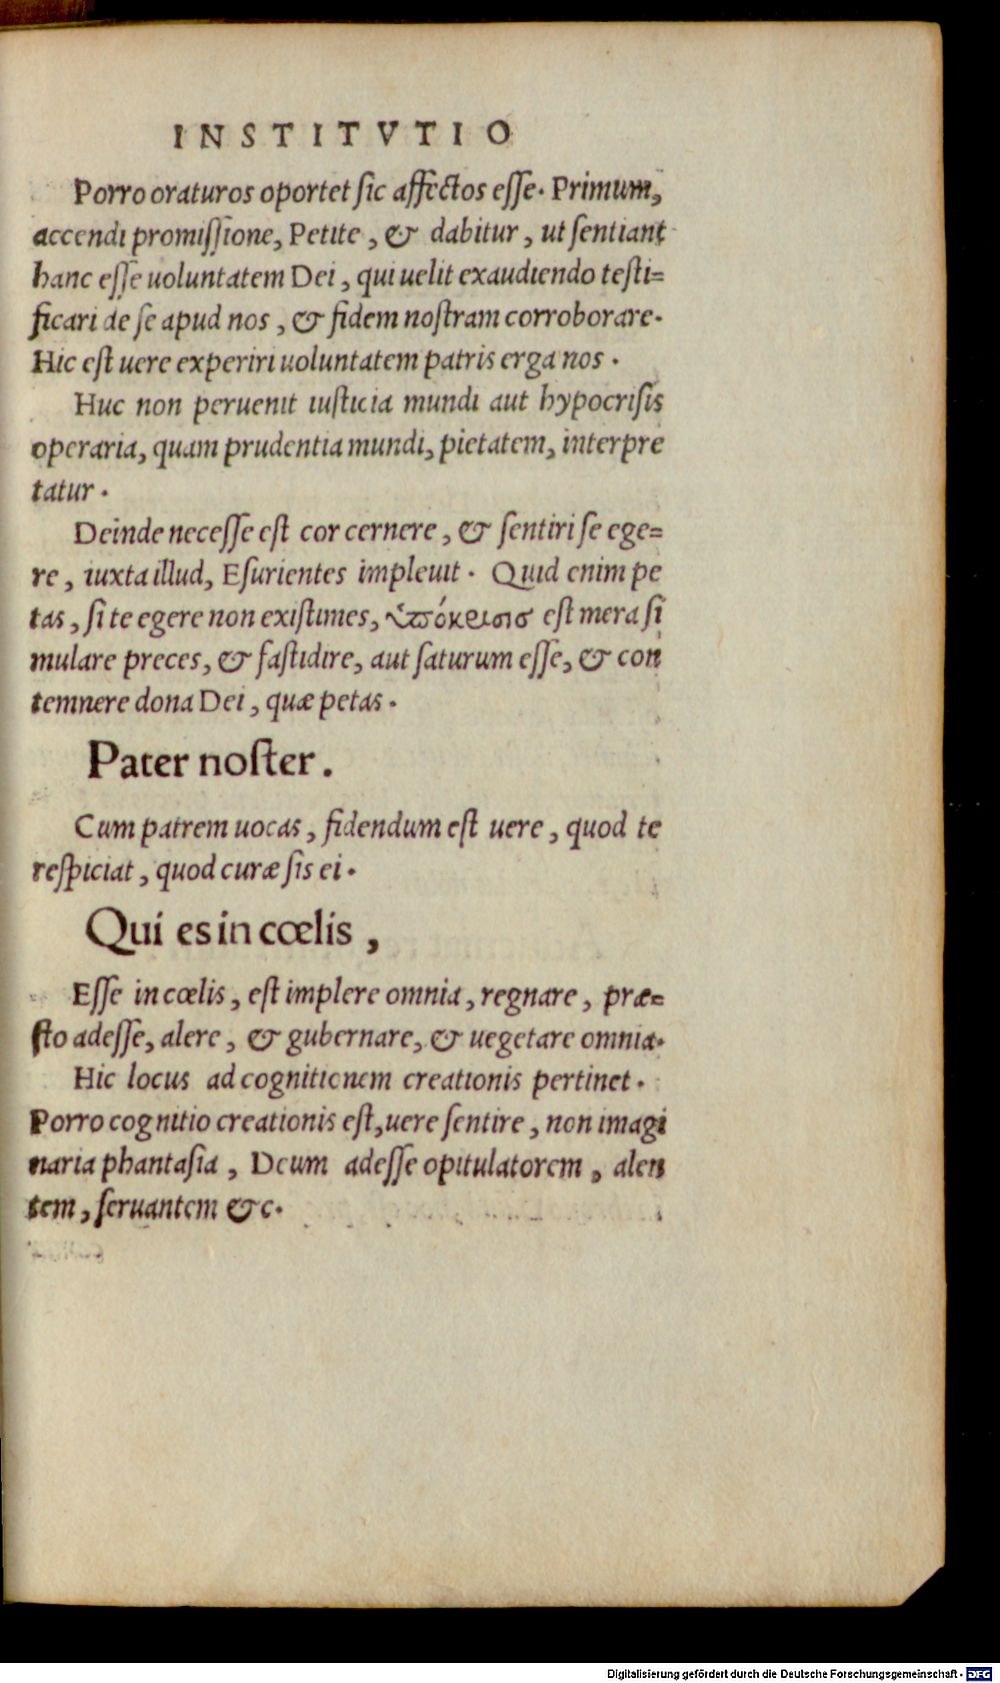 INSTITVTIO
Porro oraturos oportet sic affectos esse. Primum,
accendi promissione, Petite, & dabitur, ut sentiant
hanc esse uoluntatem Dei, qui uelit exaudiendo testi=
ficari de se apud nos, & fidem nostram corroborare.
Hic est uere experiri uoluntatem patris erga nos.
Huc non peruenit iusticia mundi aut hypocrisis
operaria, quam prudentia mundi, pietatem, interpre
tatur.
Deinde necesse est cor cernere, & sentiri se ege=
re, iuxta illud, Esurientes impleuit. Quid enim pe
tas, si te egere non existimes, ὑπόκρισισ est mera si
mulare preces, & fastidire, aut saturum esse, & con
temnere dona Dei, quæ petas.
Pater noster.
Cum patrem uocas, fidendum est uere, quod te
respiciat, quod curæ sis ei.
Qui es in cœlis,
Esse in cœlis, est implere omnia, regnare, præ=
sto adesse, alere, & gubernare, & uegetare omnia.
Hic locus ad cognitionem creationis pertinet.
Porro cognitio creationis est, uere sentire, non imagi
naria phantasia, Deum adesse opitulatorem, alen
tem, seruantem &c.
Digitalisierung gefördert durch die Deutsche Forschungsgemeinschaft - DFG